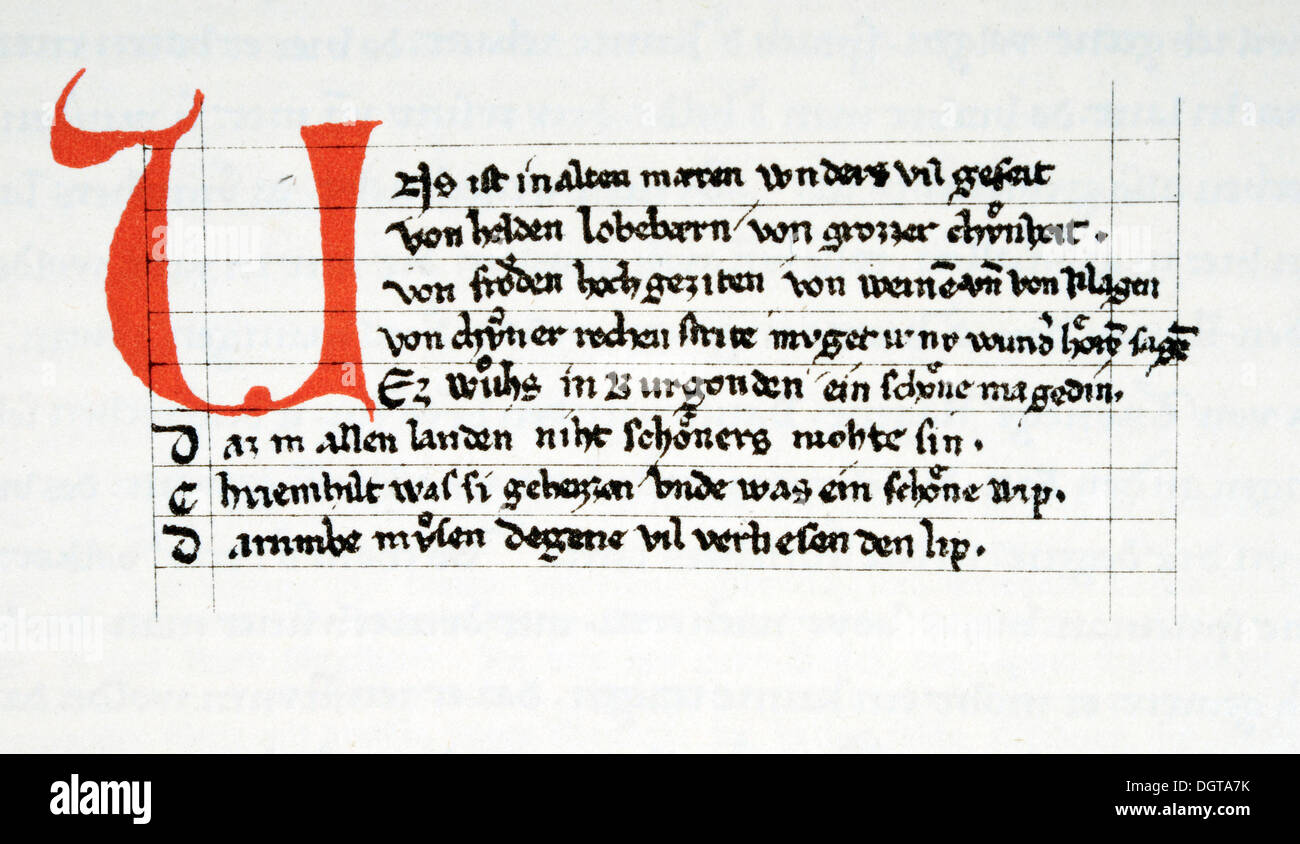 UNS ist in alten mæren wnders vil geseit
von helden lobebærn von grozzer chvͦnheit.
von froͤden hochgeziten von weinēn vn̄ von klagen
von chvͤner rechen strite mvget ir nv wund̾ hoͤrē sagē
Ez wuͦhs in Burgonden ein schoͤne magedin.
Daz in allen landen niht schoͤners mohte sin.
Chriemhilt was si geheizzen vnde was ein schoͤne wip.
Darumbe mvͤsen degene vil verliesen den lip.
alamy
alamy
Image ID: DGTA7K
www.alamy.com